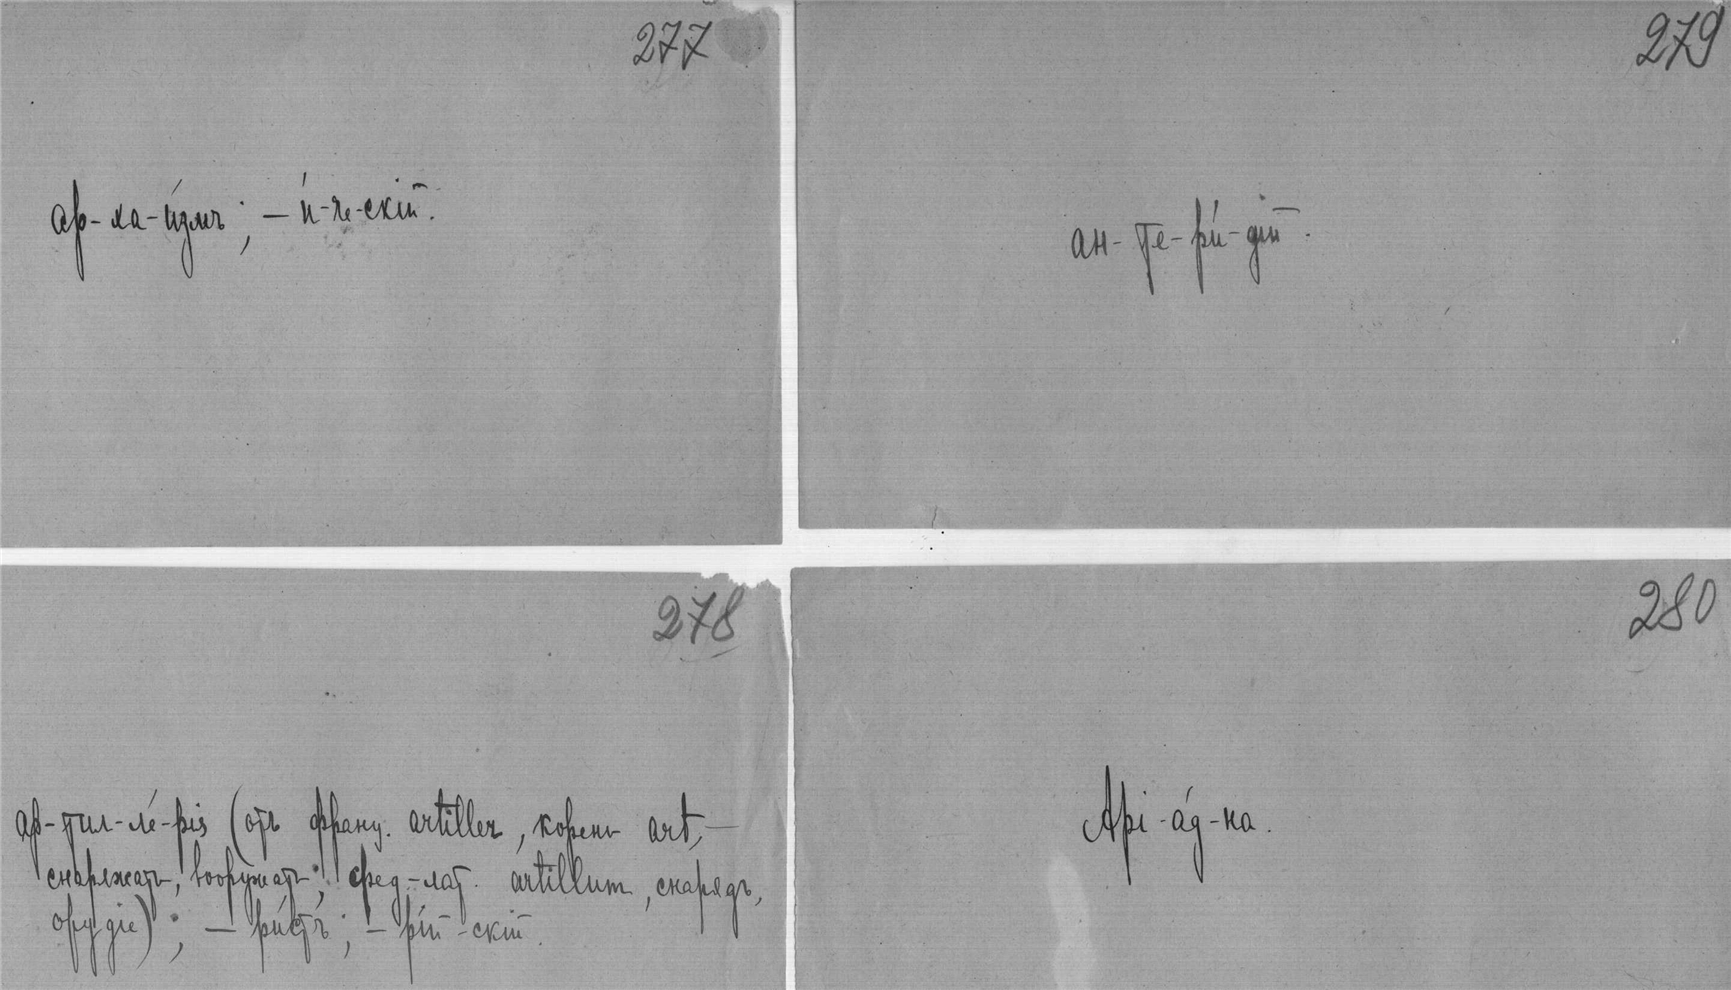 277
ар-ха-и́змъ; — и́-че-скій.
278
ар-тил-ле́-рія (отъ франц. artiller, корень art, —
снаряжать, вооружать; сред-лат. artillum, снарядъ,
орудіе); — ри́стъ; — рі́й-скій.
279
ан-те-ри́-дій.
280
Арі-а́д-на.